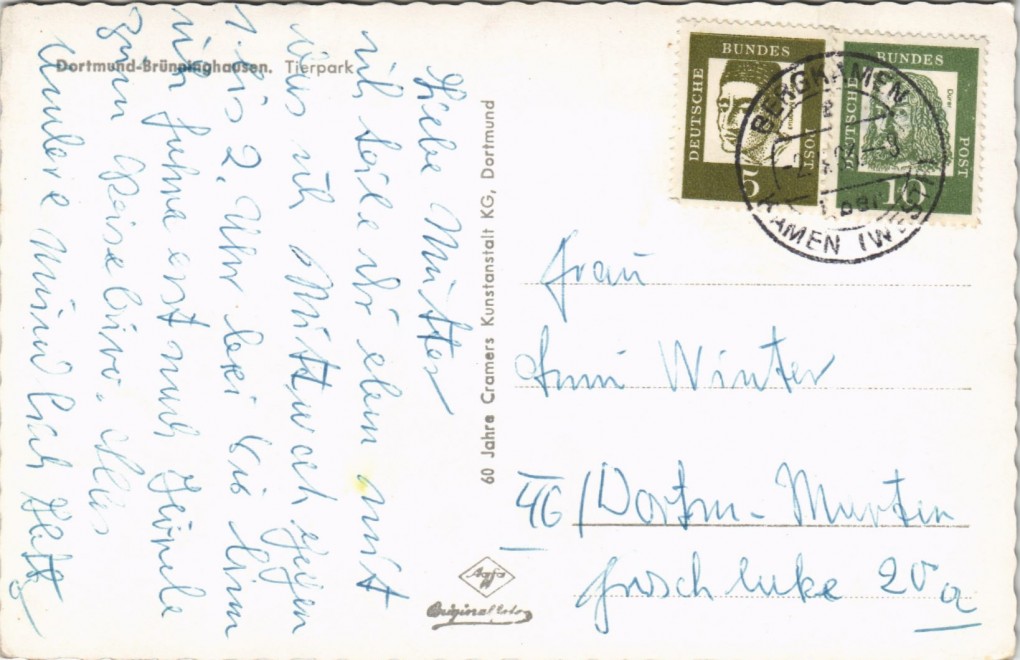 Dortmund-Brünninghausen. Tierpark
Liebe Mutter
ich teile dir eben mit
das ich Mittwoch gegen
1 bis 2. Uhr bei bin
ich fahre erst nach
zum Reisebüro. Alles
andere Mündlich
60 Jahre Cramers Kunstanstalt KG, Dortmund
Agfa
Original
DEUTSCHE BUNDES POST
5
DEUTSCHE BUNDES POST
Dürer
10
BERGKAMEN
KAMEN (WESTF)
Frau
Winter
46/Dortm-Marten
20 a